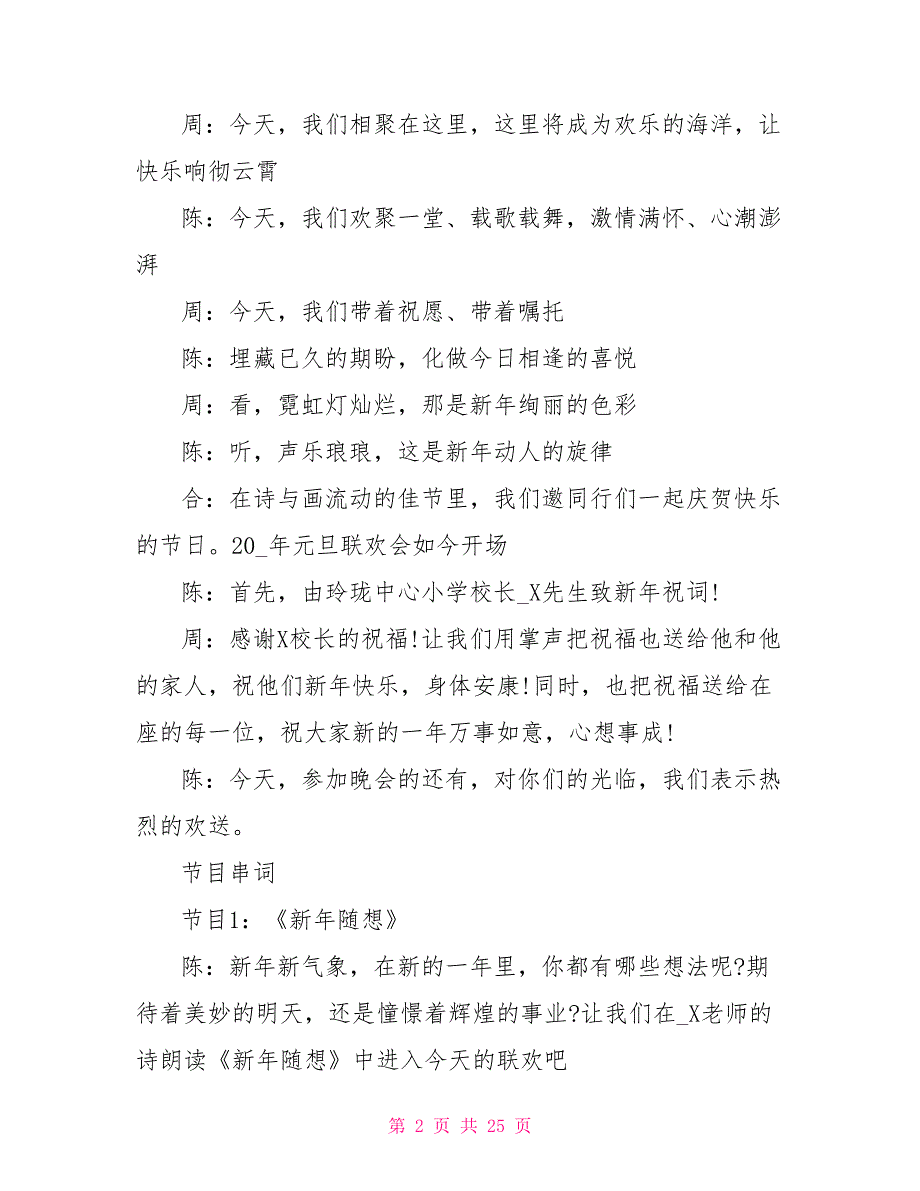 周：今天，我们相聚在这里，这里将成为欢乐的海洋，让
快乐响彻云霄
陈：今天，我们欢聚一堂、载歌载舞，激情满怀、心潮澎
湃
周：今天，我们带着祝愿、带着嘱托
陈：埋藏已久的期盼，化做今日相逢的喜悦
周：看，霓虹灯灿烂，那是新年绚丽的色彩
陈：听，声乐琅琅，这是新年动人的旋律
合：在诗与画流动的佳节里，我们邀同行们一起庆贺快乐
的节日。20_年元旦联欢会如今开场
陈：首先，由玲珑中心小学校长_X先生致新年祝词!
周：感谢X校长的祝福!让我们用掌声把祝福也送给他和他
的家人，祝他们新年快乐，身体安康!同时，也把祝福送给在
座的每一位，祝大家新的一年万事如意，心想事成!
陈：今天，参加晚会的还有，对你们的光临，我们表示热
烈的欢送。
节目串词
节目1：《新年随想》
陈：新年新气象，在新的一年里，你都有哪些想法呢?期
待着美妙的明天，还是憧憬着辉煌的事业?让我们在_X老师的
诗朗读《新年随想》中进入今天的联欢吧
第 2 页 共 25 页